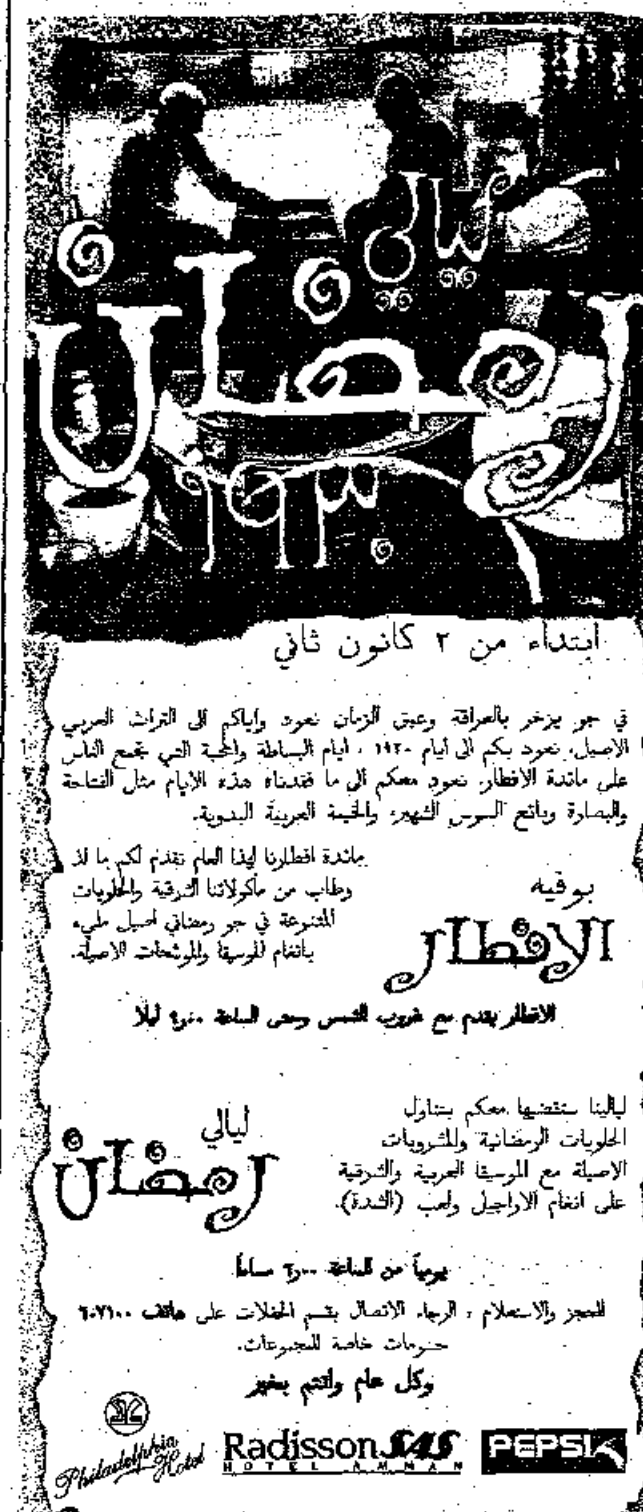 ليالي
رمضان
١٩٣٠
ابتداء من ٢ كانون ثاني
في جو يزخر بالعراقة وعبق الزمان نعود واياكم الى التراث العربي
الاصيل، نعود بكم الى أيام ١٩٣٠ ، أيام البساطة والمحبة التي تجمع الناس
على مائدة الافطار. نعود معكم الى ما فقدناه هذه الأيام مثل الفتاحة
والبصارة وبائع السوس الشهير، والخيمة العربية البدوية.
بوفيه
الافطار
مائدة افطارنا لهذا العام تقدم لكم ما لذ
وطاب من مأكولاتنا الشرقية والحلويات
المتنوعة في جو رمضاني اصيل مليء
بانغام الموسيقا والموشحات الاصيلة.
الافطار يقدم مع غروب الشمس وحتى الساعة ليلا
ليالي
رمضان
ليالينا سنقضيها معكم بتناول
الحلويات الرمضانية والمشروبات
الاصيلة مع الموسيقا العربية والشرقية
على انغام الاراجيل ولعب (الشدة).
يومياً من الساعة ٦٫٠٠ مساءاً
للحجز والاستعلام ، الرجاء الاتصال بقسم الحفلات على هاتف ٦٠٧١٠٠
خصومات خاصة للمجموعات.
وكل عام وانتم بخير
Philadelphia Hotel
Radisson SAS
HOTEL AMMAN
PEPSI